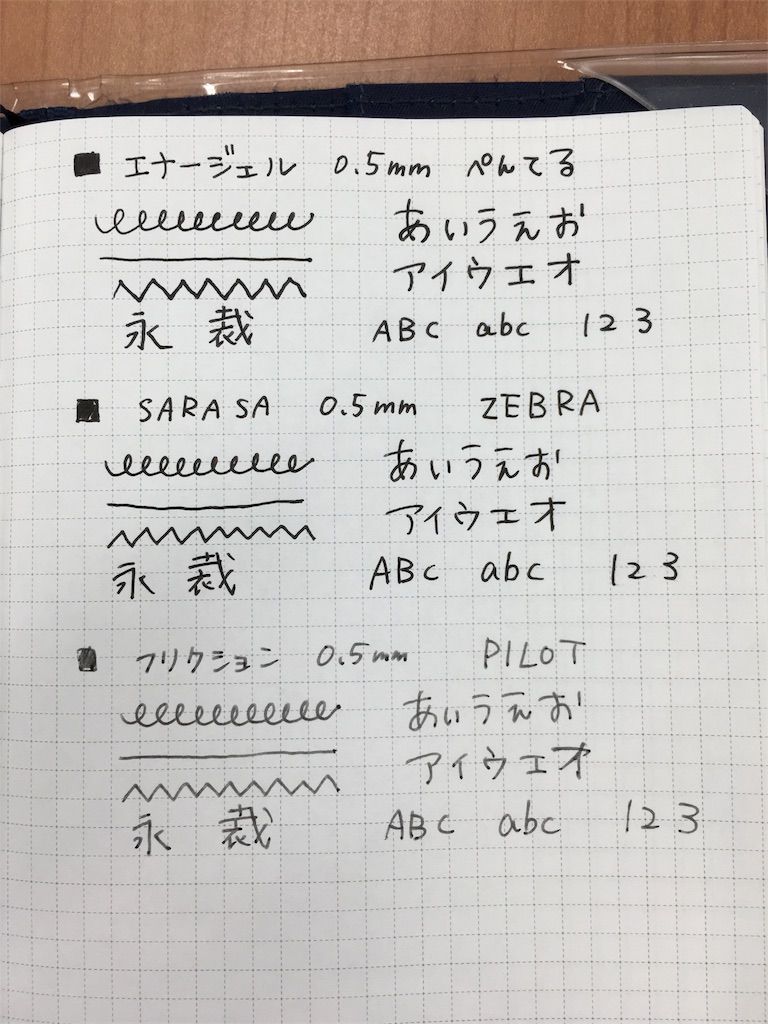 ■ エナージェル 0.5mm ぺんてる
あいうえお
アイウエオ
永 裁 ABC abc 123
■ SARASA 0.5mm ZEBRA
あいうえお
アイウエオ
永 裁 ABC abc 123
■ フリクション 0.5mm PILOT
あいうえお
アイウエオ
永 裁 ABC abc 123